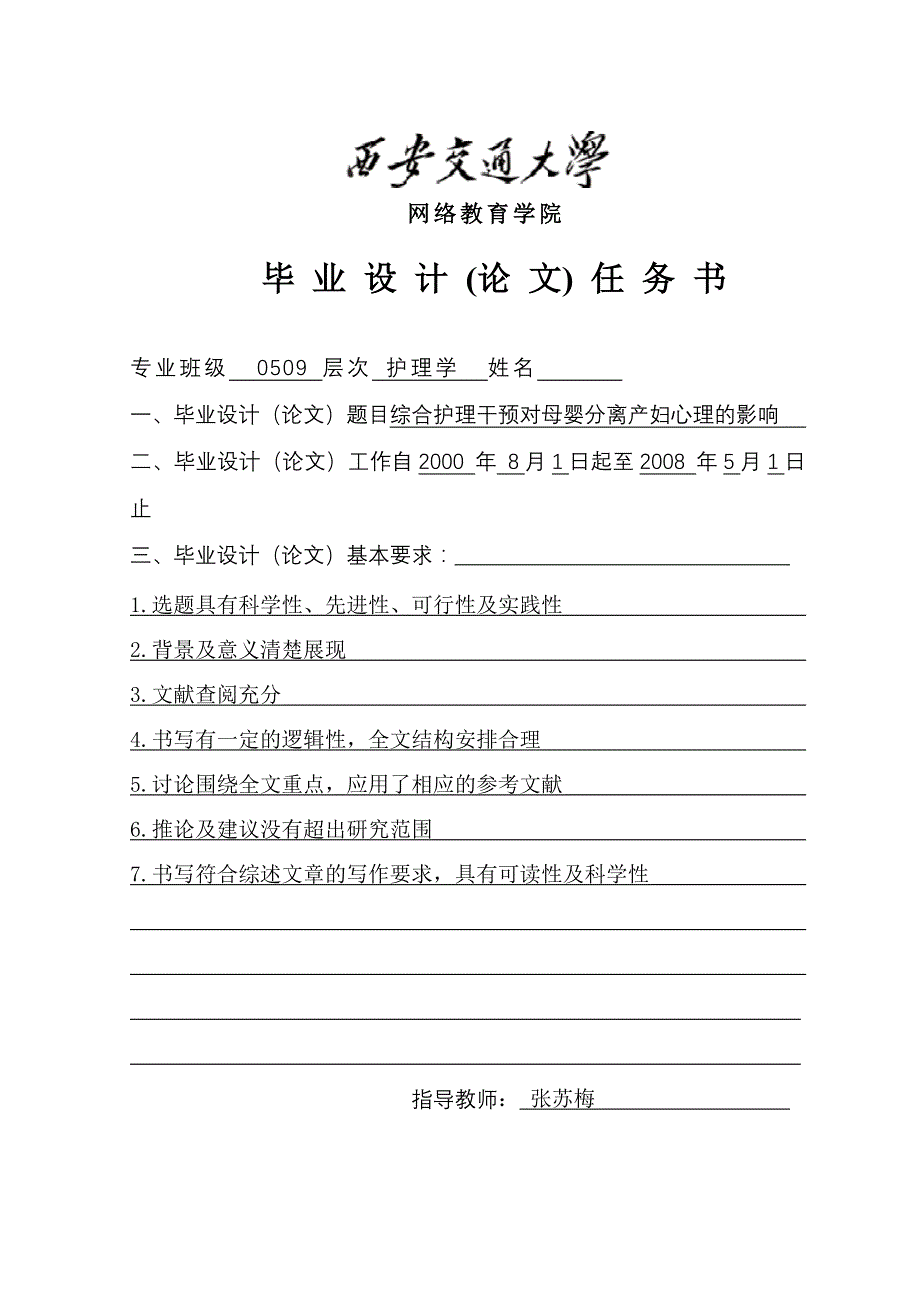 西安交通大學
网络教育学院
毕 业 设 计 (论 文) 任 务 书
专业班级 0509 层次 护理学 姓名
一、毕业设计（论文）题目综合护理干预对母婴分离产妇心理的影响
二、毕业设计（论文）工作自 2000 年 8 月 1 日起至 2008 年 5 月 1 日
止
三、毕业设计（论文）基本要求：
1.选题具有科学性、先进性、可行性及实践性
2.背景及意义清楚展现
3.文献查阅充分
4.书写有一定的逻辑性，全文结构安排合理
5.讨论围绕全文重点，应用了相应的参考文献
6.推论及建议没有超出研究范围
7.书写符合综述文章的写作要求，具有可读性及科学性
指导教师： 张苏梅